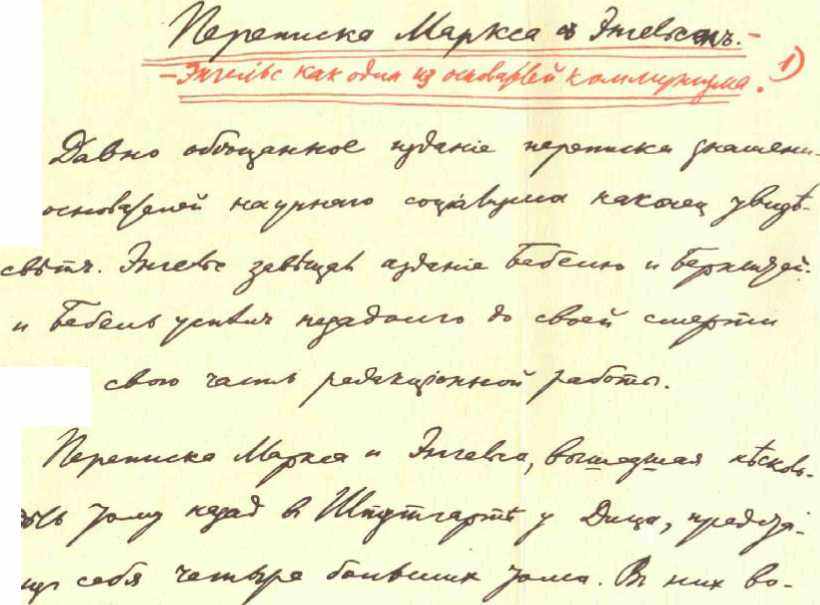 Переписка Маркса съ Энгельсомъ. –
– Энгельс как один из основателей коммунизма. 1)
Давно обѣщанное изданіе переписки знамени-
основателей научнаго соціализма наконец увидѣ-
свѣтъ. Энгельс завѣщал изданіе Бебелю и Бернштей-
и Бебель успѣл незадолго до своей смерти
свою часть редакціонной работы.
Переписка Маркса и Энгельса, вышедшая нѣсколь-
тому назад в Штутгартѣ у Дица, представ-
себя четыре больших тома. Въ них во-